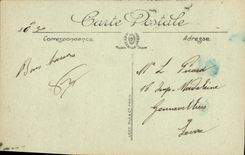 Carte Postale
Correspondance
Adresse
Bons baisers
Mr L Picard
16 imp. Madeleine
Gennevilliers
Seine